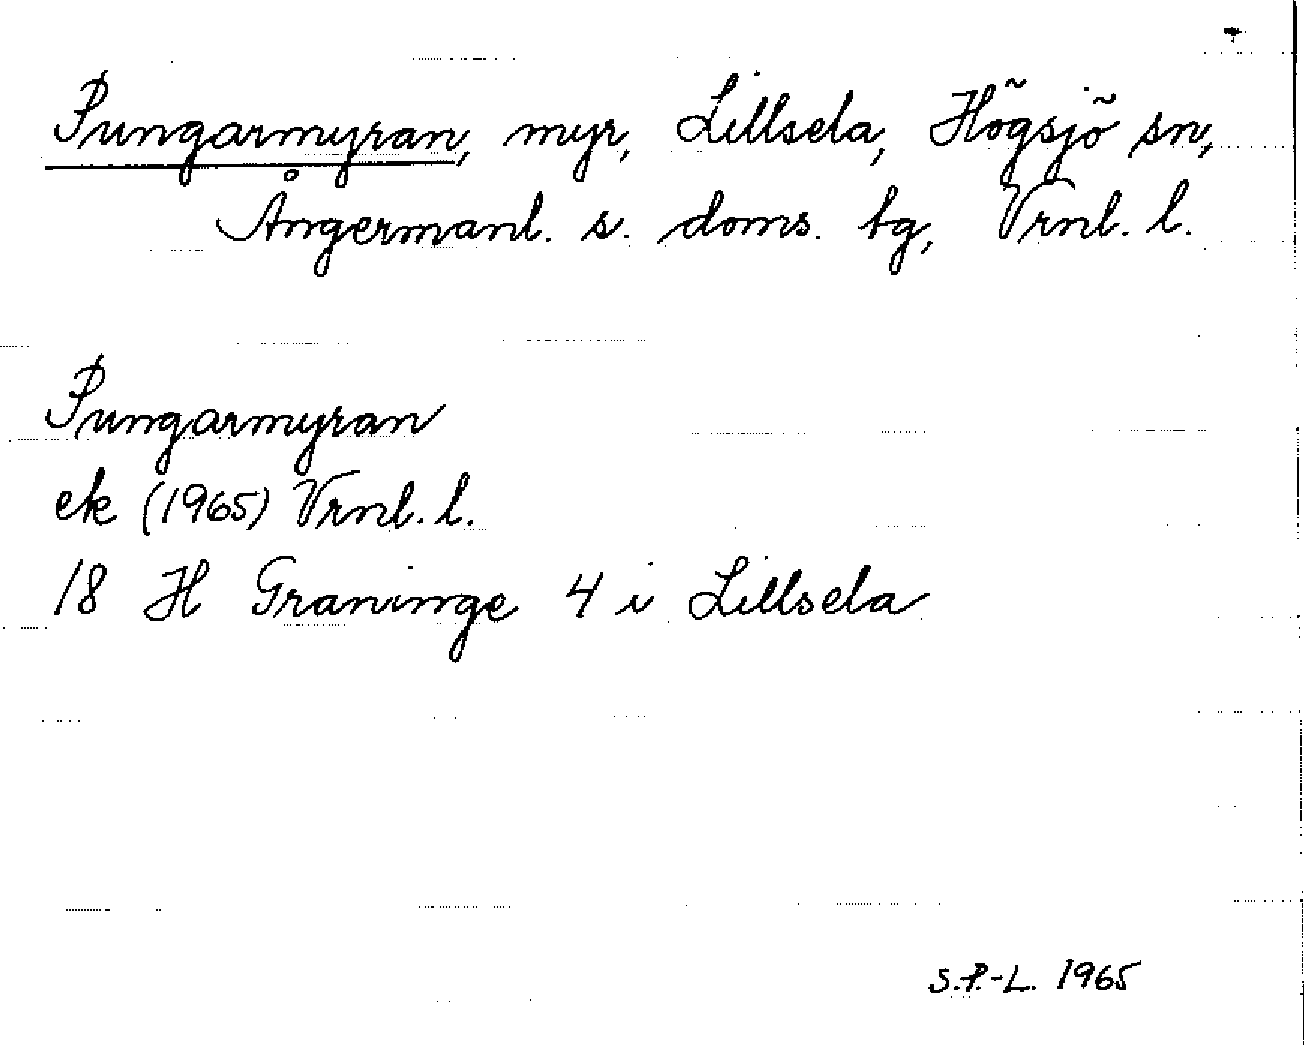 Pungarmyran, myr, Lillsela, Högsjö sn,
Ångermanl. s. doms. tg, Vrnl. l.
Pungarmyran
ek (1965) Vrnl. l.
18 H Graninge 4 i Lillsela
S.P.-L. 1965